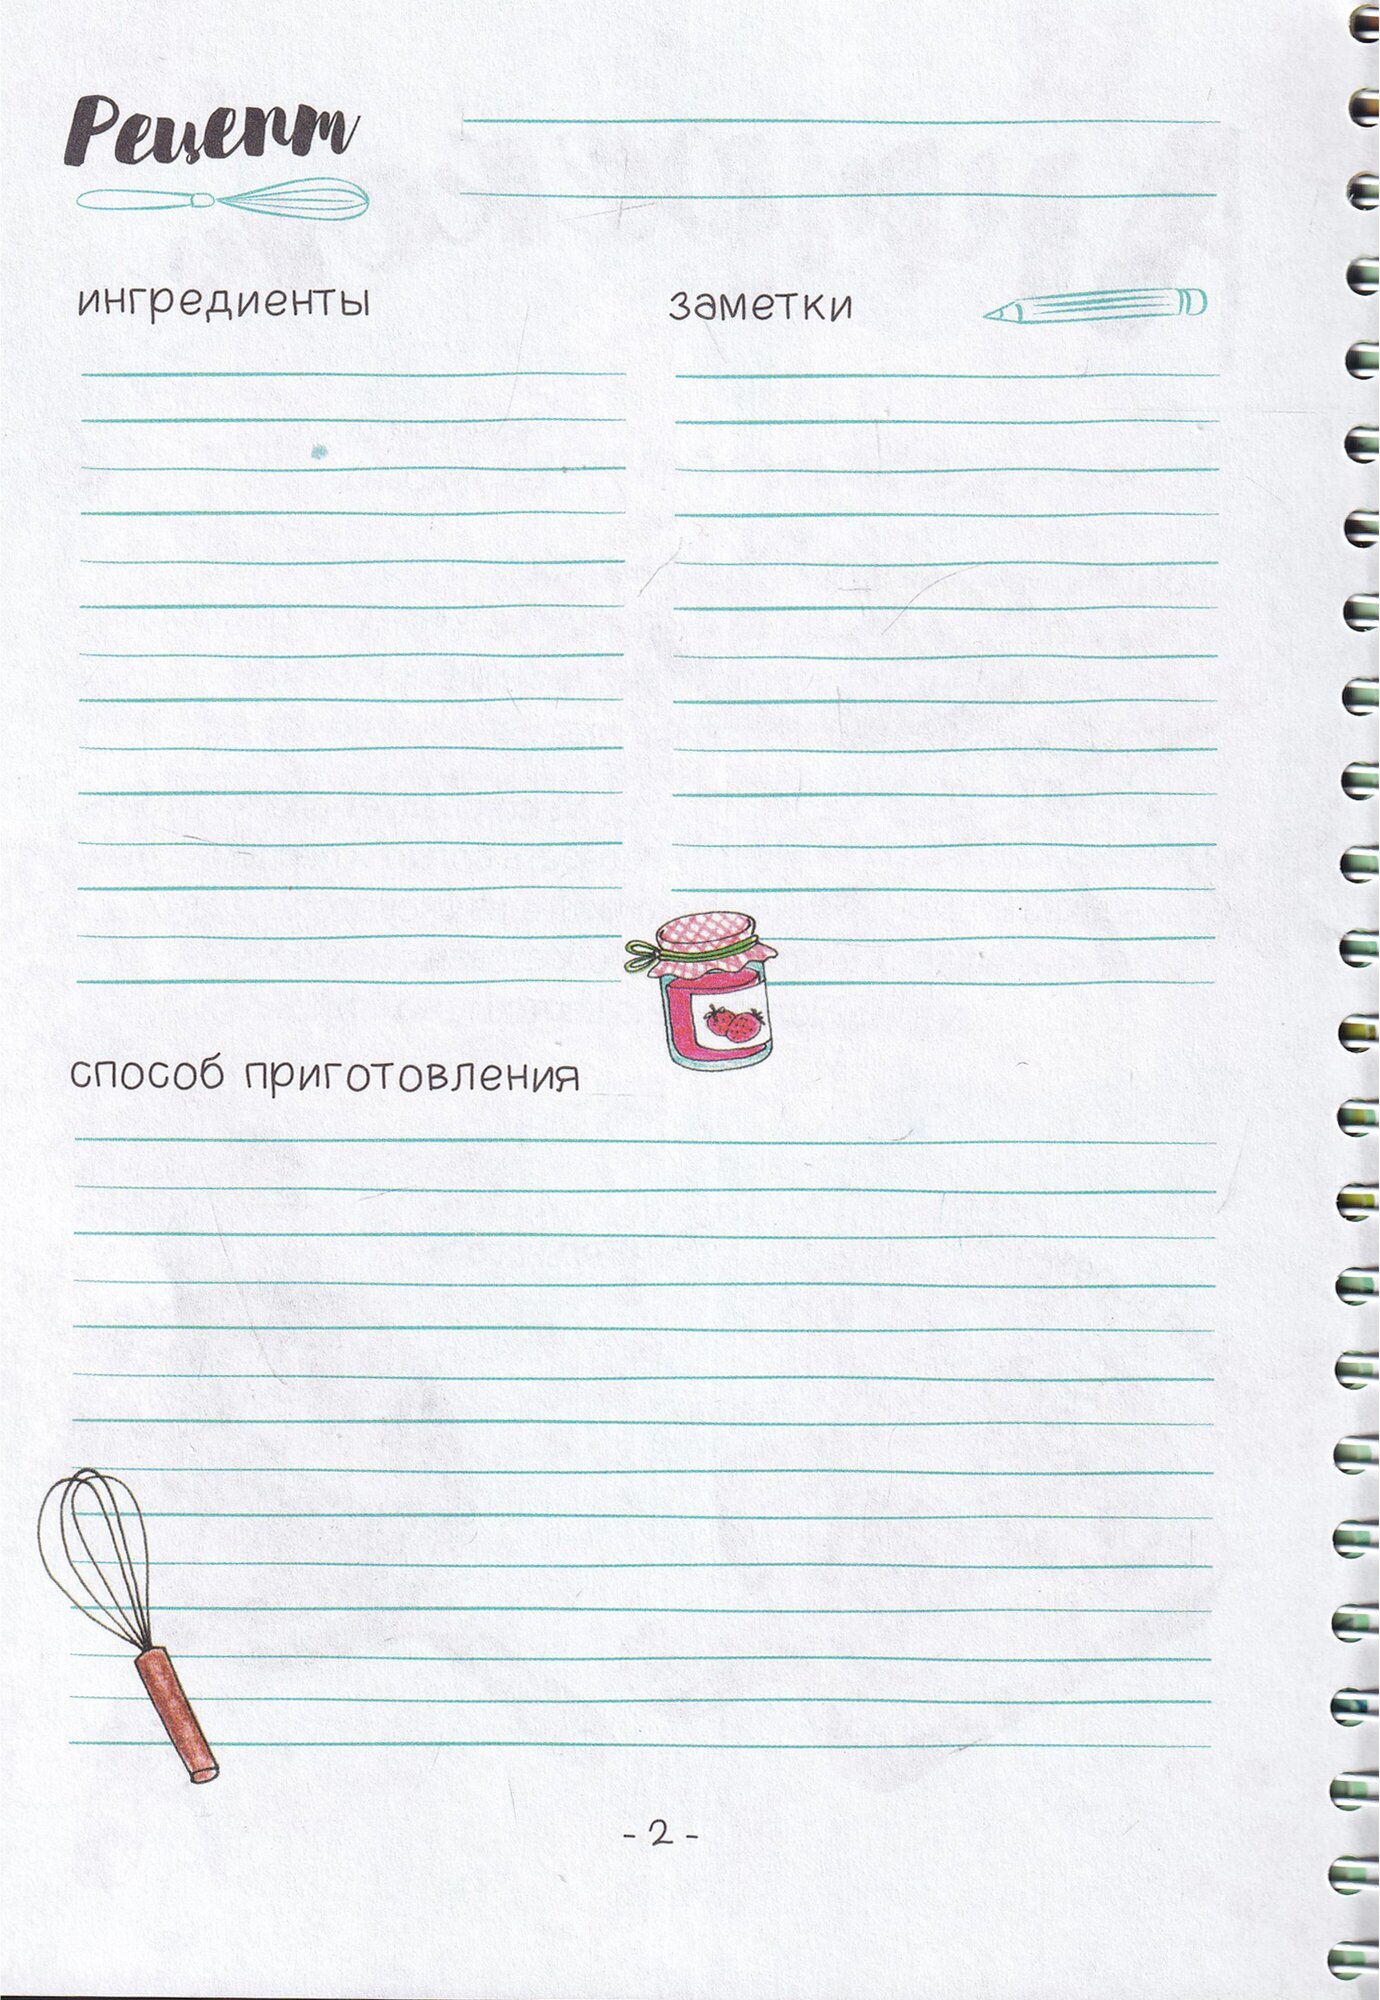 Рецепт
ингредиенты
заметки
способ приготовления
- 2 -